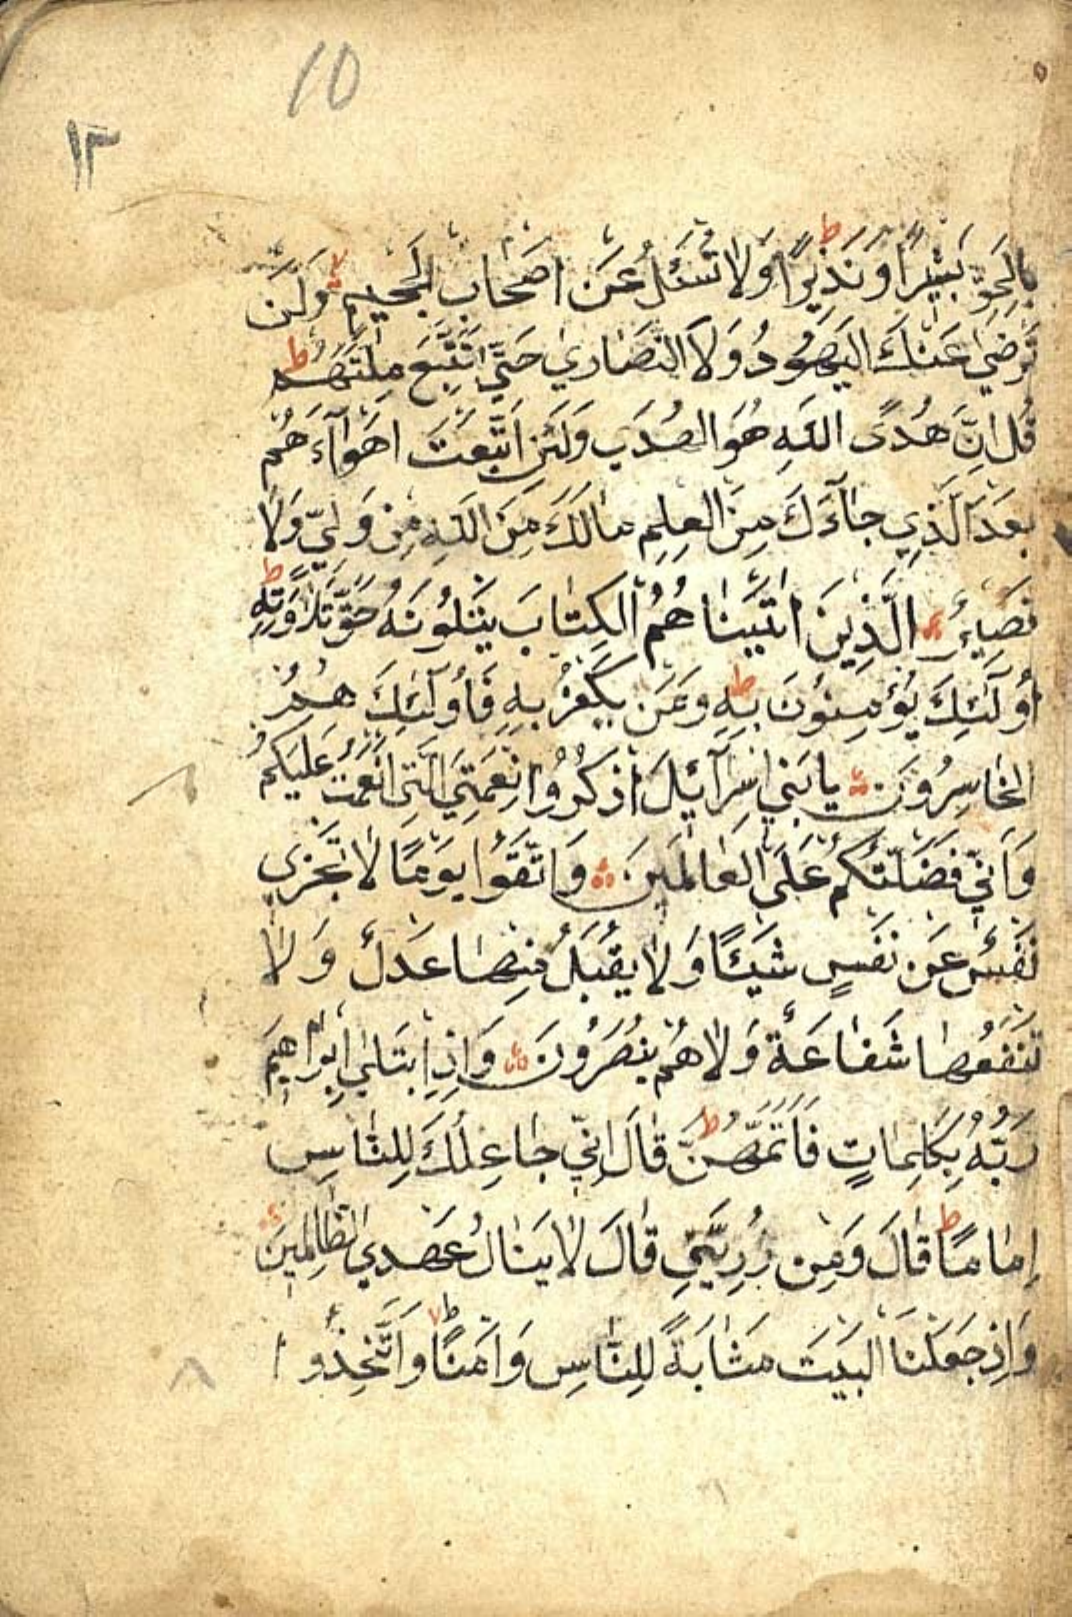 10
١٣
بِالحَقِّ بَشِيرًا وَنَذِيرًا ط وَلَا تُسْئَلُ عَن اَصحَابِ الجَحِيمِ لا وَلَن
تَرضٰى عَنكَ اليَهُودُ وَلَا النَّصَارٰي حَتّٰى تَتَّبِعَ مِلَّتَهُم ط
قُل اِنَّ هُدَى اللّٰهِ هُوَ الهُدٰى وَلَئِنِ اتَّبَعتَ اَهوَآءَ هُم
بَعدَ الَّذِي جَآءَكَ مِنَ العِلمِ مَالَكَ مِنَ اللّٰهِ مِن وَلِيٍّ وَلَا
نَصِيرٍ الَّذِينَ اٰتَيْنَا هُمُ الكِتَابَ يَتلُونَهُ حَقَّ تِلَاوَتِهِ ط
اُولَٓئِكَ يُؤمِنُونَ بِهِ ط وَمَن يَكفُر بِهِ فَاُولَٓئِكَ هُمُ
الخَاسِرُونَ يَا بَنِي اِسرَآئِلَ اذكُرُوا نِعمَتِيَ الَّتِي اَنعَمتُ عَلَيكُم
وَاَنِّي فَضَّلتُكُم عَلَى العَالَمِينَ وَاتَّقُوا يَومًا لَا تَجزِي
نَفسٌ عَن نَفسٍ شَيئًا وَلَا يُقبَلُ مِنهَا عَدلٌ وَلَا
تَنفَعُهَا شَفَاعَةٌ وَلَا هُم يُنصَرُونَ وَاِذِ ابتَلٰى اِبرَاهِيمَ
رَبُّهُ بِكَلِمَاتٍ فَاَتَمَّهُنَّ ط قَالَ اِنِّي جَاعِلُكَ لِلنَّاسِ
اِمَامًا ط قَالَ وَمِن ذُرِّيَّتِي قَالَ لَا يَنَالُ عَهدِي الظَّالِمِينَ
وَاِذ جَعَلنَا البَيتَ مَثَابَةً لِلنَّاسِ وَاَمنًا ط وَاتَّخِذُوا